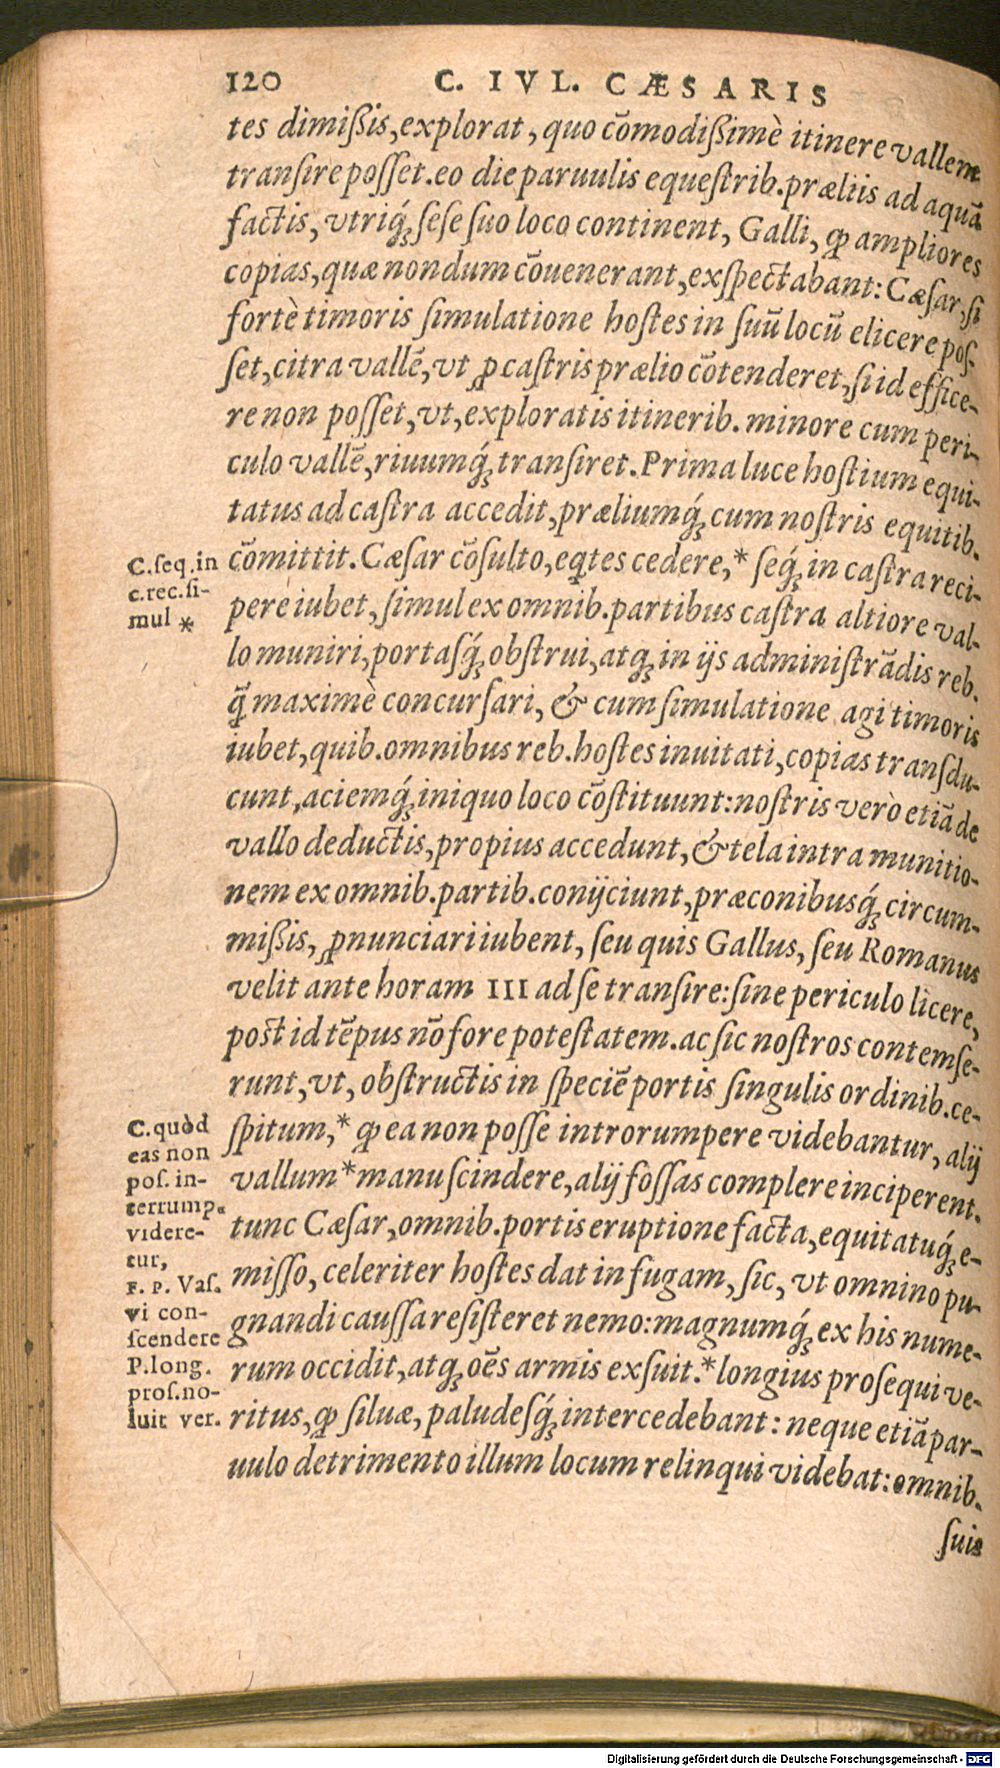 120 C. IVL. CÆSARIS
tes dimißis, explorat, quo cōmodißimè itinere vallem
transire posſet. eo die paruulis equeſtrib. præliis ad aquā
factis, vtriq́ꝫ ſeſe ſuo loco continent, Galli, ꝙ ampliores
copias, quæ nondum cōuenerant, exſpectabant: Cæſar, ſi
fortè timoris ſimulatione hoſtes in ſuū locū elicere poſ-
ſet, citra vallē, vt ꝓ caſtris prælio cōtenderet, ſi id effice-
re non poſſet, vt, exploratis itinerib. minore cum peri-
culo vallē, riuumq́ꝫ tranſiret. Prima luce hoſtium equi-
tatus ad caſtra accedit, præliumq́ꝫ cum noſtris equitib.
cōmittit. Cæſar cōſulto, eq̃tes cedere, * ſeq́ꝫ in caſtra reci-
pere iubet, ſimul ex omnib. partibus caſtra altiore val-
lo muniri, portaſq́ꝫ obſtrui, atqꝫ in ijs adminiſtrādis reb.
q̄ maximè concurſari, & cum ſimulatione agi timoris
iubet, quib. omnibus reb. hoſtes inuitati, copias tranſdu-
cunt, aciemq́ꝫ iniquo loco cōſtituunt: noſtris verò etiā de
vallo deductis, propius accedunt, & tela intra munitio-
nem ex omnib. partib. conijciunt, præconibusq́ꝫ circum-
mißis, ꝓnunciari iubent, ſeu quis Gallus, ſeu Romanus
velit ante horam III ad ſe tranſire: ſine periculo licere,
poſt id tēpus nō fore poteſtatem. ac ſic noſtros contemſe-
runt, vt, obſtructis in ſpeciē portis ſingulis ordinib. ce-
ſpitum, * ꝙ ea non poſſe introrumpere videbantur, alij
vallum * manu ſcindere, alij foſſas complere inciperent.
tunc Cæſar, omnib. portis eruptione facta, equitatuq́ꝫ e-
miſſo, celeriter hoſtes dat in fugam, ſic, vt omnino pu-
gnandi cauſſa reſiſteret nemo: magnumq́ꝫ ex his nume-
rum occidit, atqꝫ oēs armis exſuit. * longius proſequi ve-
ritus, ꝙ ſiluæ, paludeſq́ꝫ intercedebant: neque etiā par-
uulo detrimento illum locum relinqui videbat: omnib.
ſuis
C. ſeq. in
c. rec. ſi-
mul *
C. quòd
eas non
poſ. in-
terrump.
videre-
tur,
F. P. Vaſ.
vi con-
ſcendere
P. long.
proſ. no-
luit ver.
Digitalisierung gefördert durch die Deutsche Forschungsgemeinschaft - DFG